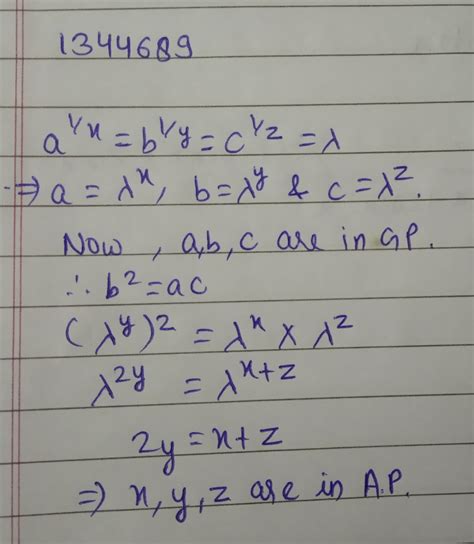 1344689
a^1/x = b^1/y = c^1/z = λ
⇒ a = λ^x, b = λ^y & c = λ^z.
Now, a,b,c are in GP.
∴ b² = ac
(λ^y)² = λ^x × λ^z
λ^2y = λ^x+z
2y = x+z
⇒ x, y, z are in A.P.